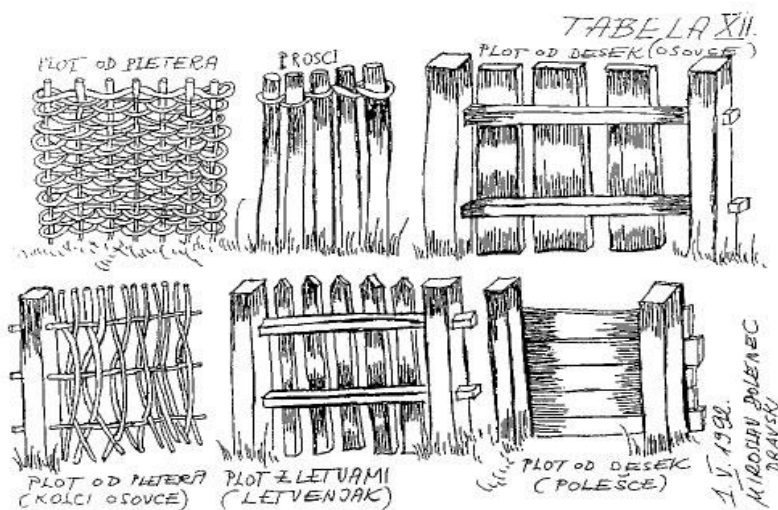 TABELA XII.
PLOT OD PLETERA
PROSCI
PLOT OD DESEK (OSOVCE)
PLOT OD PLETERA
(KOLCI OSOVCE)
PLOT Z LETVAMI
(LETVENJAK)
PLOT OD DESEK
(POLEŠCE)
1.V.1992.
MIROSLAV DOLENEC
DRAVSKI